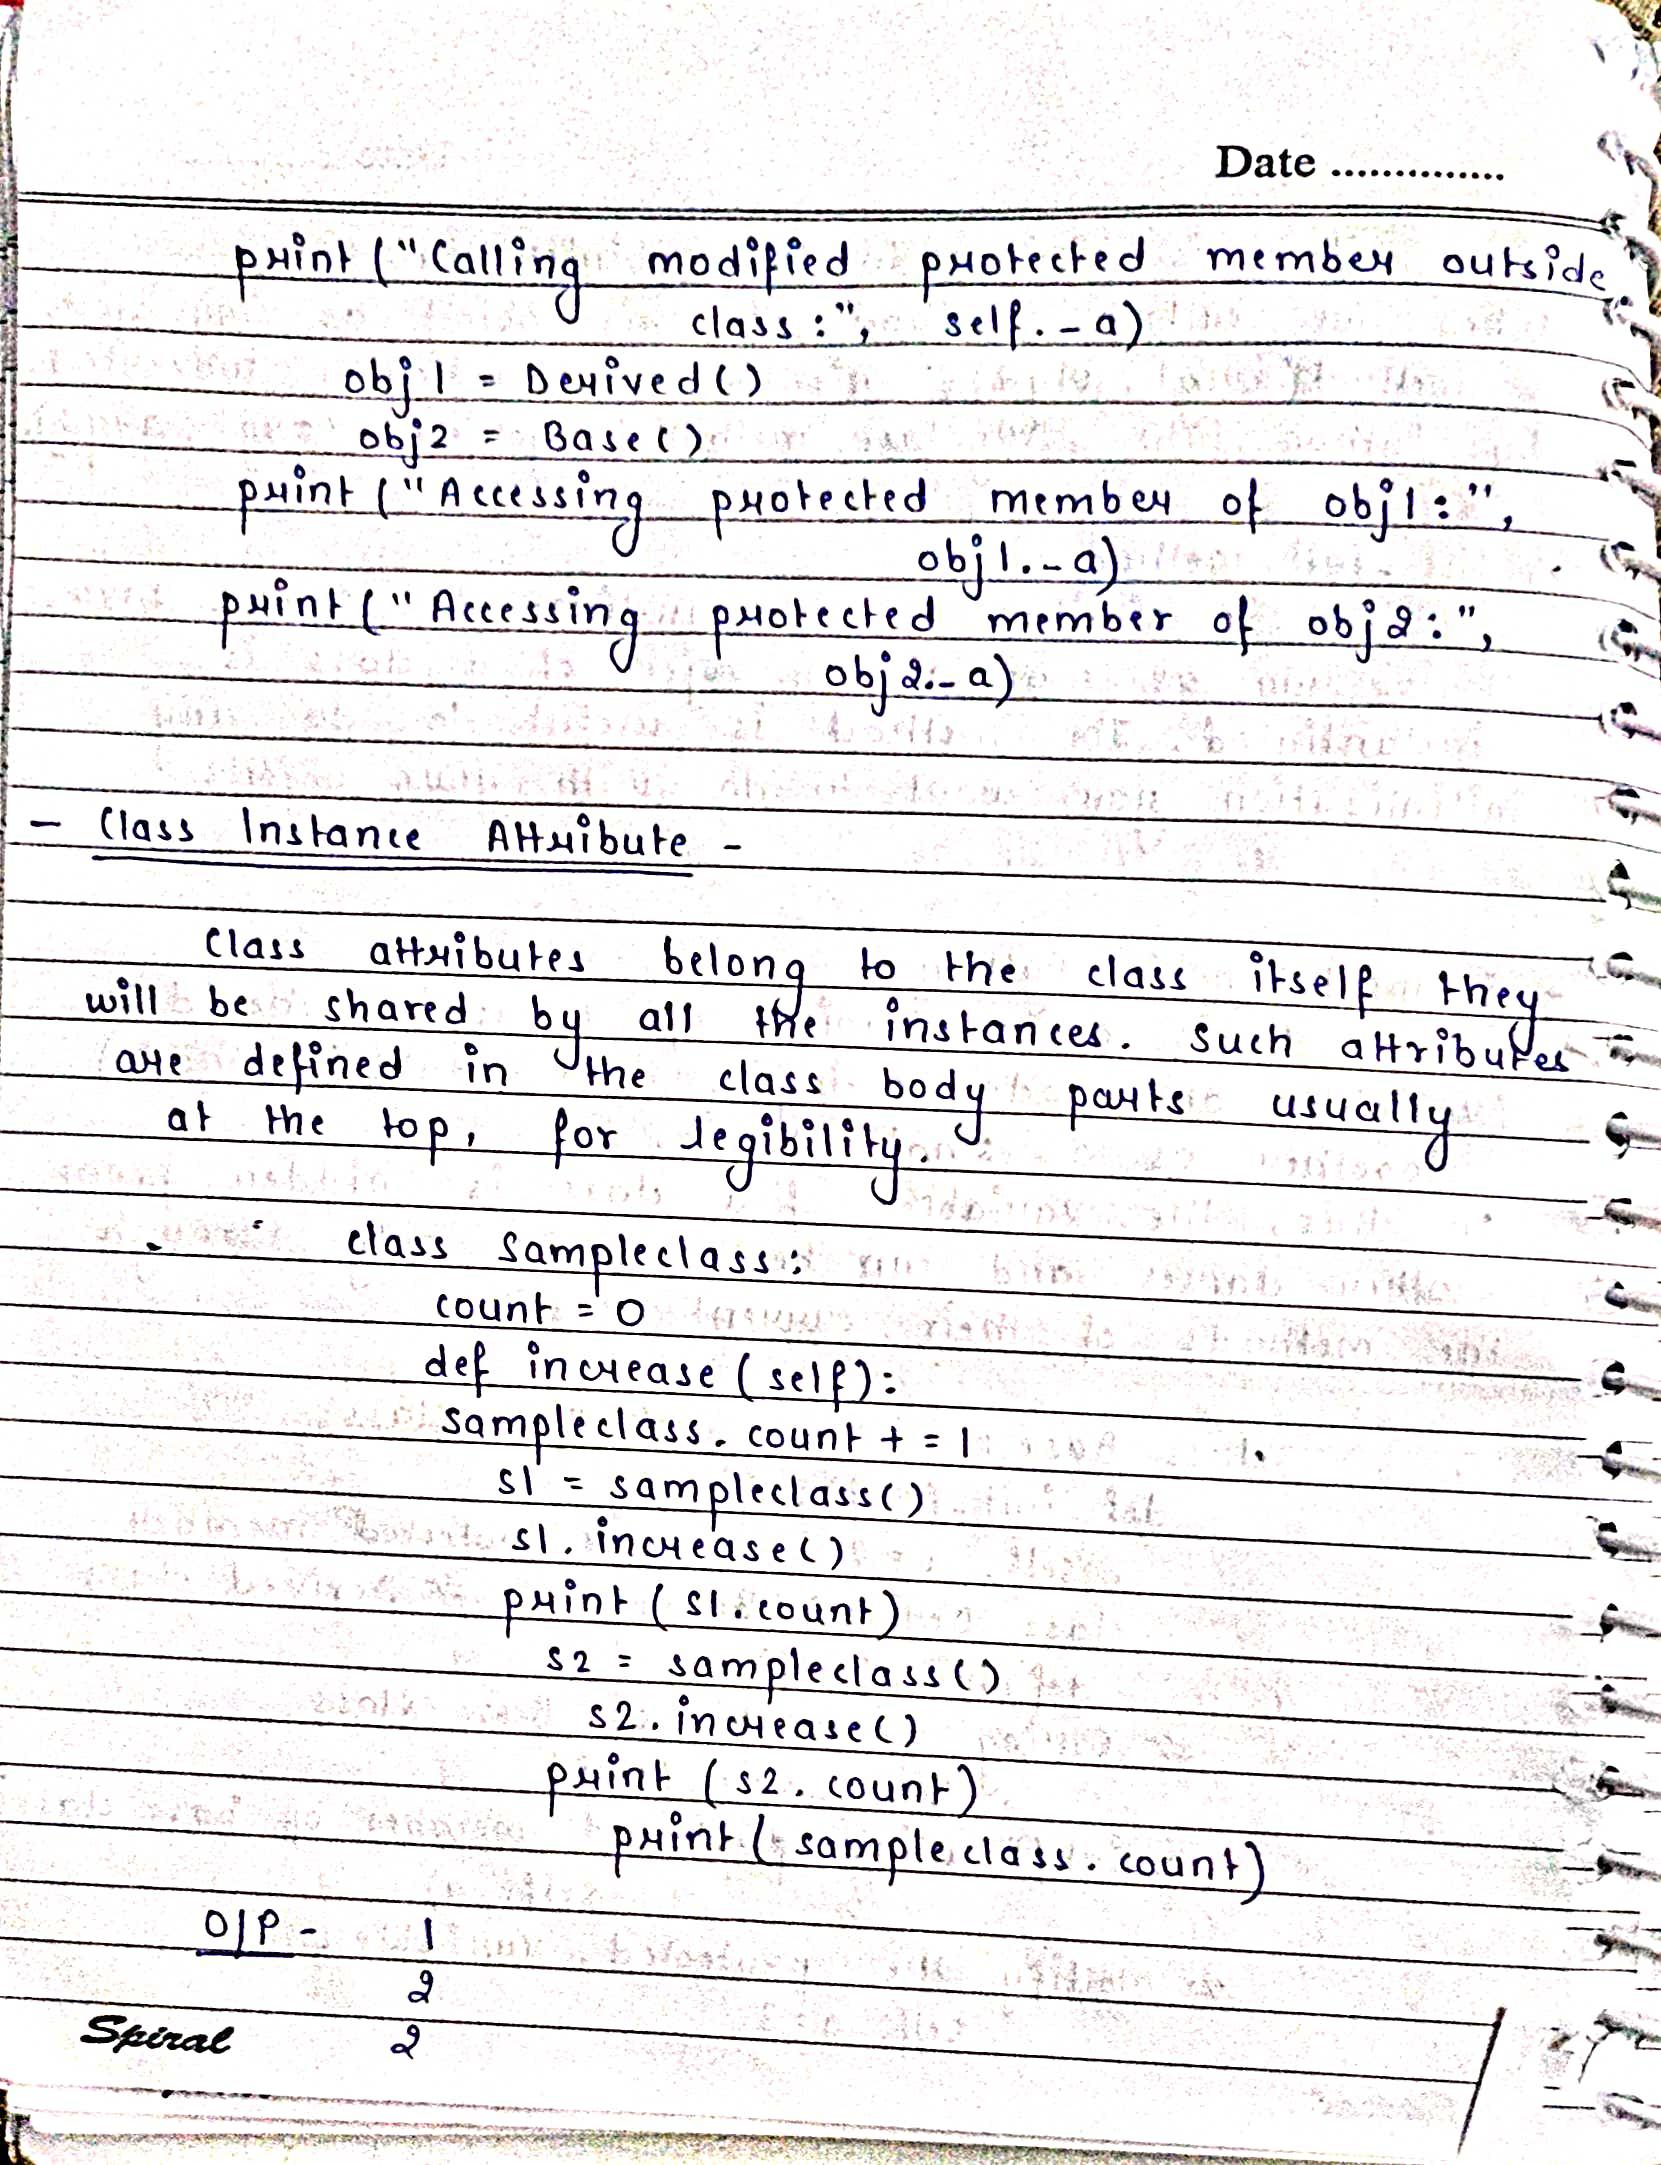 Date ..............
print ("Calling modified protected member outside
class :", self._a)
obj1 = Derived()
obj2 = Base()
print ("Accessing protected member of obj1:",
obj1._a)
print ("Accessing protected member of obj2:",
obj2._a)
- Class Instance Attribute -
Class attributes belong to the class itself they
will be shared by all the instances. Such attributes
are defined in the class body parts usually
at the top, for legibility.
class sampleclass:
count = 0
def increase (self):
sampleclass.count + = 1
s1 = sampleclass()
s1.increase()
print (s1.count)
s2 = sampleclass()
s2.increase()
print (s2.count)
print (sampleclass.count)
O/P - 1
2
2
Spiral